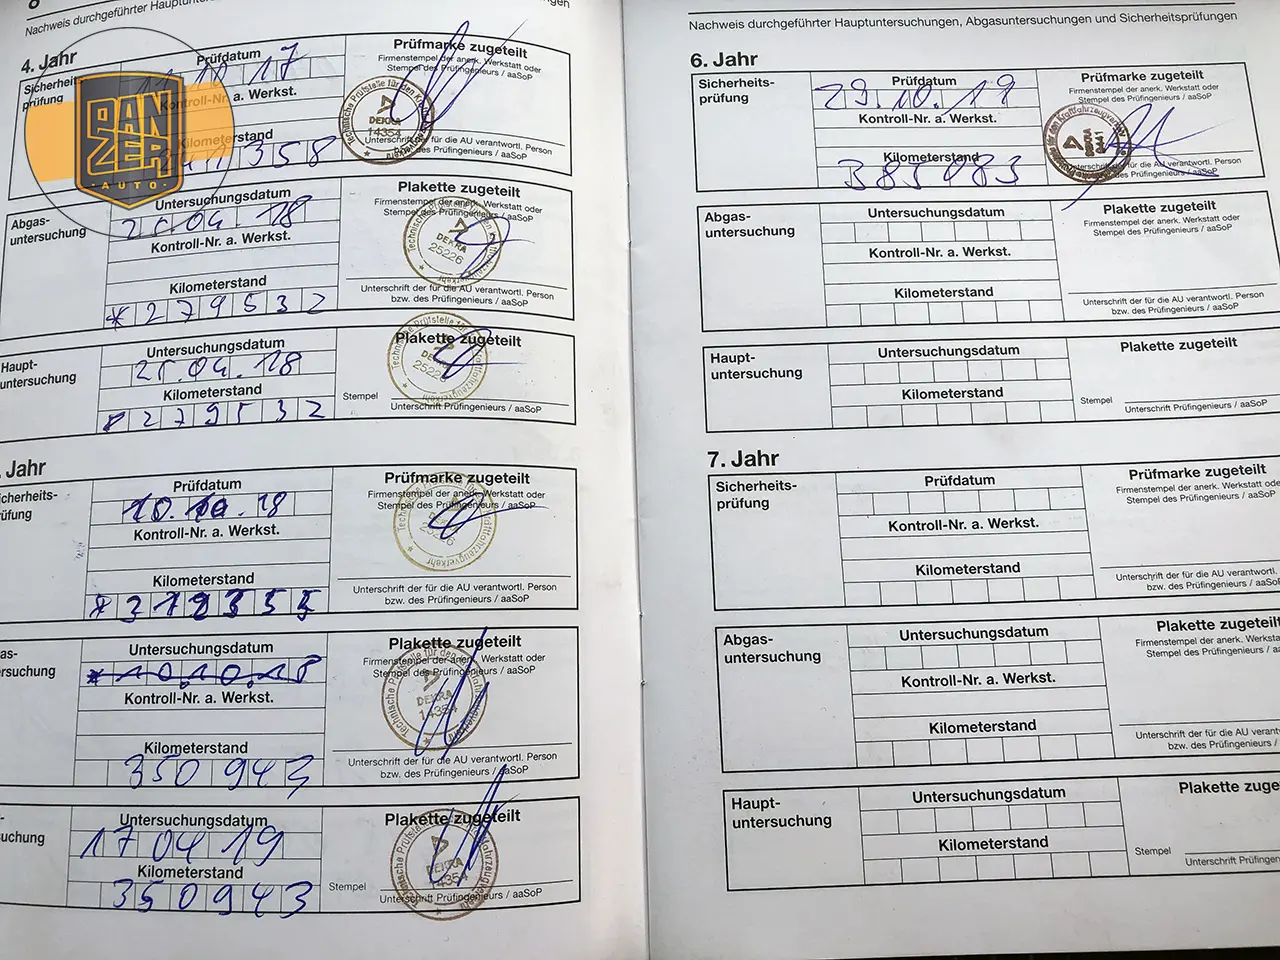 Nachweis durchgeführter Hauptuntersuchungen,
4. Jahr
Sicherheits-
prüfung
Prüfdatum
17
Kontroll-Nr. a. Werkst.
Kilometerstand
358
Prüfmarke zugeteilt
Firmenstempel der anerk. Werkstatt oder
Stempel des Prüfingenieurs / aaSoP
Technische Prüfstelle für den
DEKRA
14354
Unterschrift der für die AU verantwortl. Person
bzw. des Prüfingenieurs / aaSoP
PANZER
AUTO
Abgas-
untersuchung
Untersuchungsdatum
04. 18
Kontroll-Nr. a. Werkst.
Kilometerstand
*279532
Plakette zugeteilt
Firmenstempel der anerk. Werkstatt oder
Stempel des Prüfingenieurs / aaSoP
DEKRA
25226
Unterschrift der für die AU verantwortl. Person
bzw. des Prüfingenieurs / aaSoP
Haupt-
untersuchung
Untersuchungsdatum
04. 18
Kilometerstand
279532
Plakette zugeteilt
Stempel
Unterschrift Prüfingenieurs / aaSoP
Jahr
Prüfdatum
10. 10. 18
Kontroll-Nr. a. Werkst.
Kilometerstand
Prüfmarke zugeteilt
Firmenstempel der anerk. Werkstatt oder
Stempel des Prüfingenieurs / aaSoP
Unterschrift der für die AU verantwortl. Person
bzw. des Prüfingenieurs / aaSoP
Untersuchungsdatum
*10.10.18
Kontroll-Nr. a. Werkst.
Kilometerstand
350943
Plakette zugeteilt
Firmenstempel der anerk. Werkstatt oder
Stempel des Prüfingenieurs / aaSoP
DEKRA
14354
Unterschrift der für die AU verantwortl. Person
bzw. des Prüfingenieurs / aaSoP
Untersuchungsdatum
17 04 19
Kilometerstand
350943
Plakette zugeteilt
DEKRA
14354
Stempel
Unterschrift Prüfingenieurs / aaSoP
Nachweis durchgeführter Hauptuntersuchungen, Abgasuntersuchungen und Sicherheitsprüfungen
6. Jahr
Sicherheits-
prüfung
Prüfdatum
29.10.19
Kontroll-Nr. a. Werkst.
Kilometerstand
385083
Prüfmarke zugeteilt
Firmenstempel der anerk. Werkstatt oder
Stempel des Prüfingenieurs / aaSoP
DEKRA
Unterschrift der für die AU verantwortl. Person
bzw. des Prüfingenieurs / aaSoP
Abgas-
untersuchung
Untersuchungsdatum
Kontroll-Nr. a. Werkst.
Kilometerstand
Plakette zugeteilt
Firmenstempel der anerk. Werkstatt oder
Stempel des Prüfingenieurs / aaSoP
Unterschrift der für die AU verantwortl. Person
bzw. des Prüfingenieurs / aaSoP
Haupt-
untersuchung
Untersuchungsdatum
Kilometerstand
Plakette zugeteilt
Stempel
Unterschrift Prüfingenieurs / aaSoP
7. Jahr
Sicherheits-
prüfung
Prüfdatum
Kontroll-Nr. a. Werkst.
Kilometerstand
Prüfmarke zugeteilt
Firmenstempel der anerk. Werkstatt
Stempel des Prüfingenieurs / aaSoP
Unterschrift der für die AU verantwortl.
bzw. des Prüfingenieurs / aaSoP
Abgas-
untersuchung
Untersuchungsdatum
Kontroll-Nr. a. Werkst.
Kilometerstand
Plakette zugeteilt
Firmenstempel der anerk. Werkstatt
Stempel des Prüfingenieurs / aaSoP
Unterschrift der für die AU verantwortl.
bzw. des Prüfingenieurs /
Haupt-
untersuchung
Untersuchungsdatum
Kilometerstand
Plakette
Stempel
Unterschrift